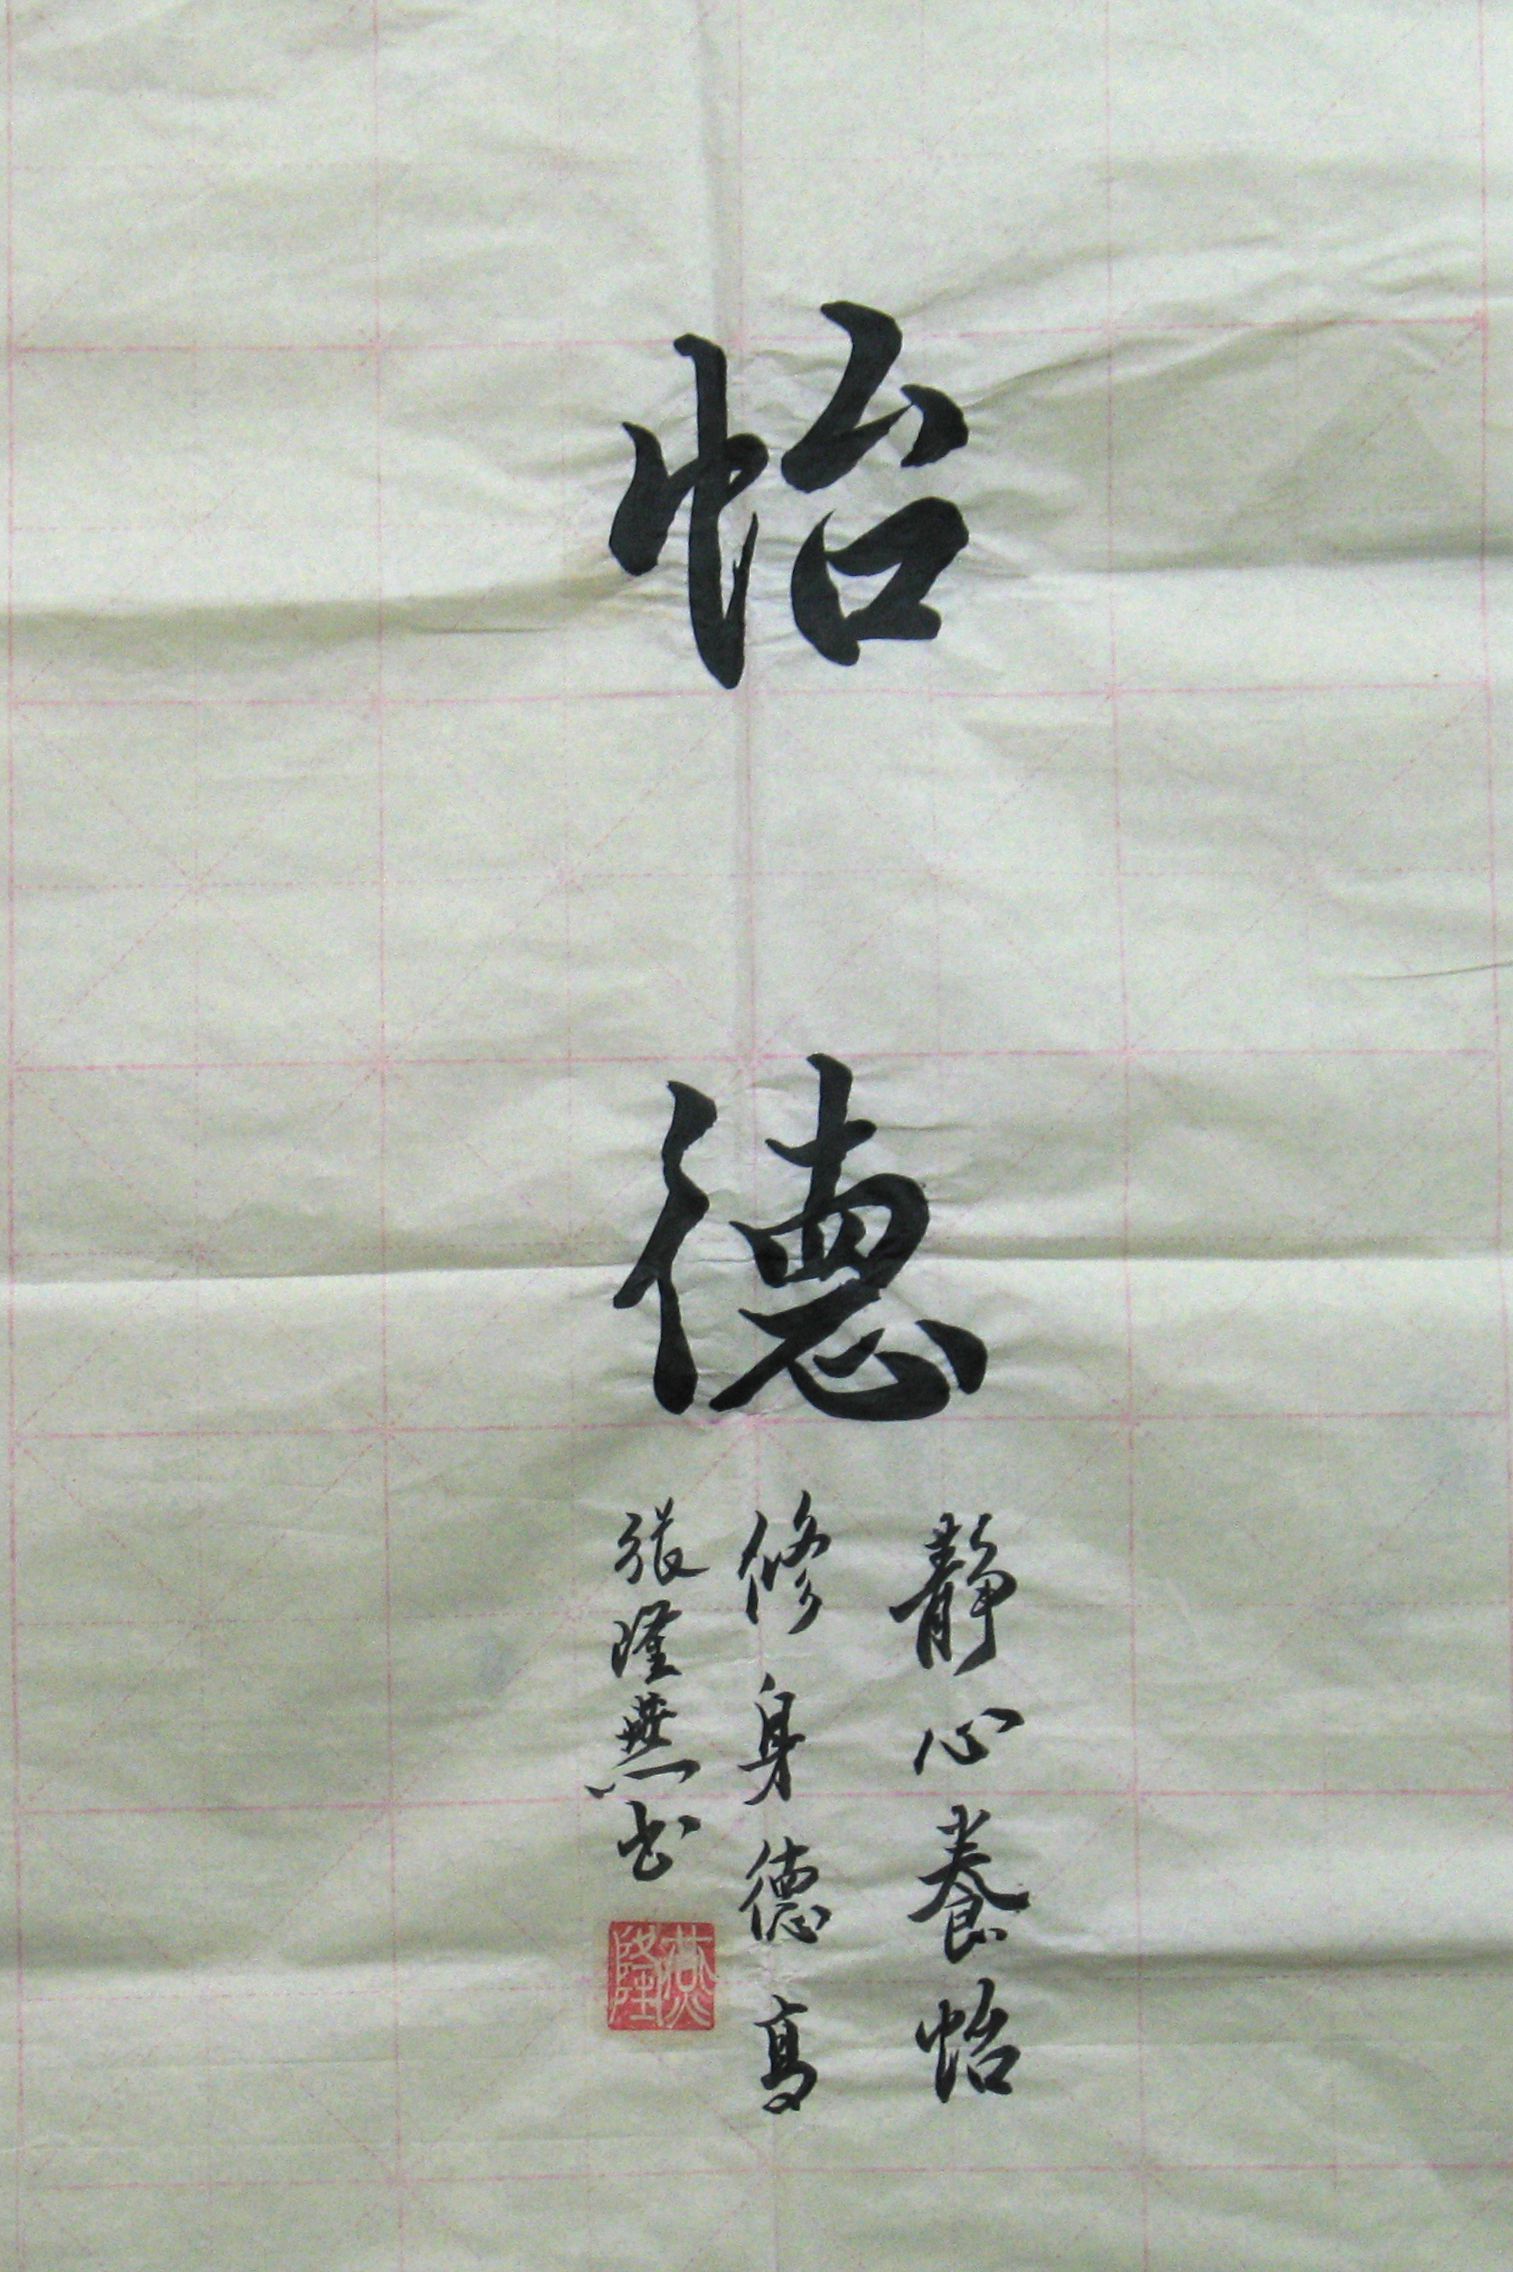 怡
德
靜心養怡
修身德高
張隆燕书
燕隆